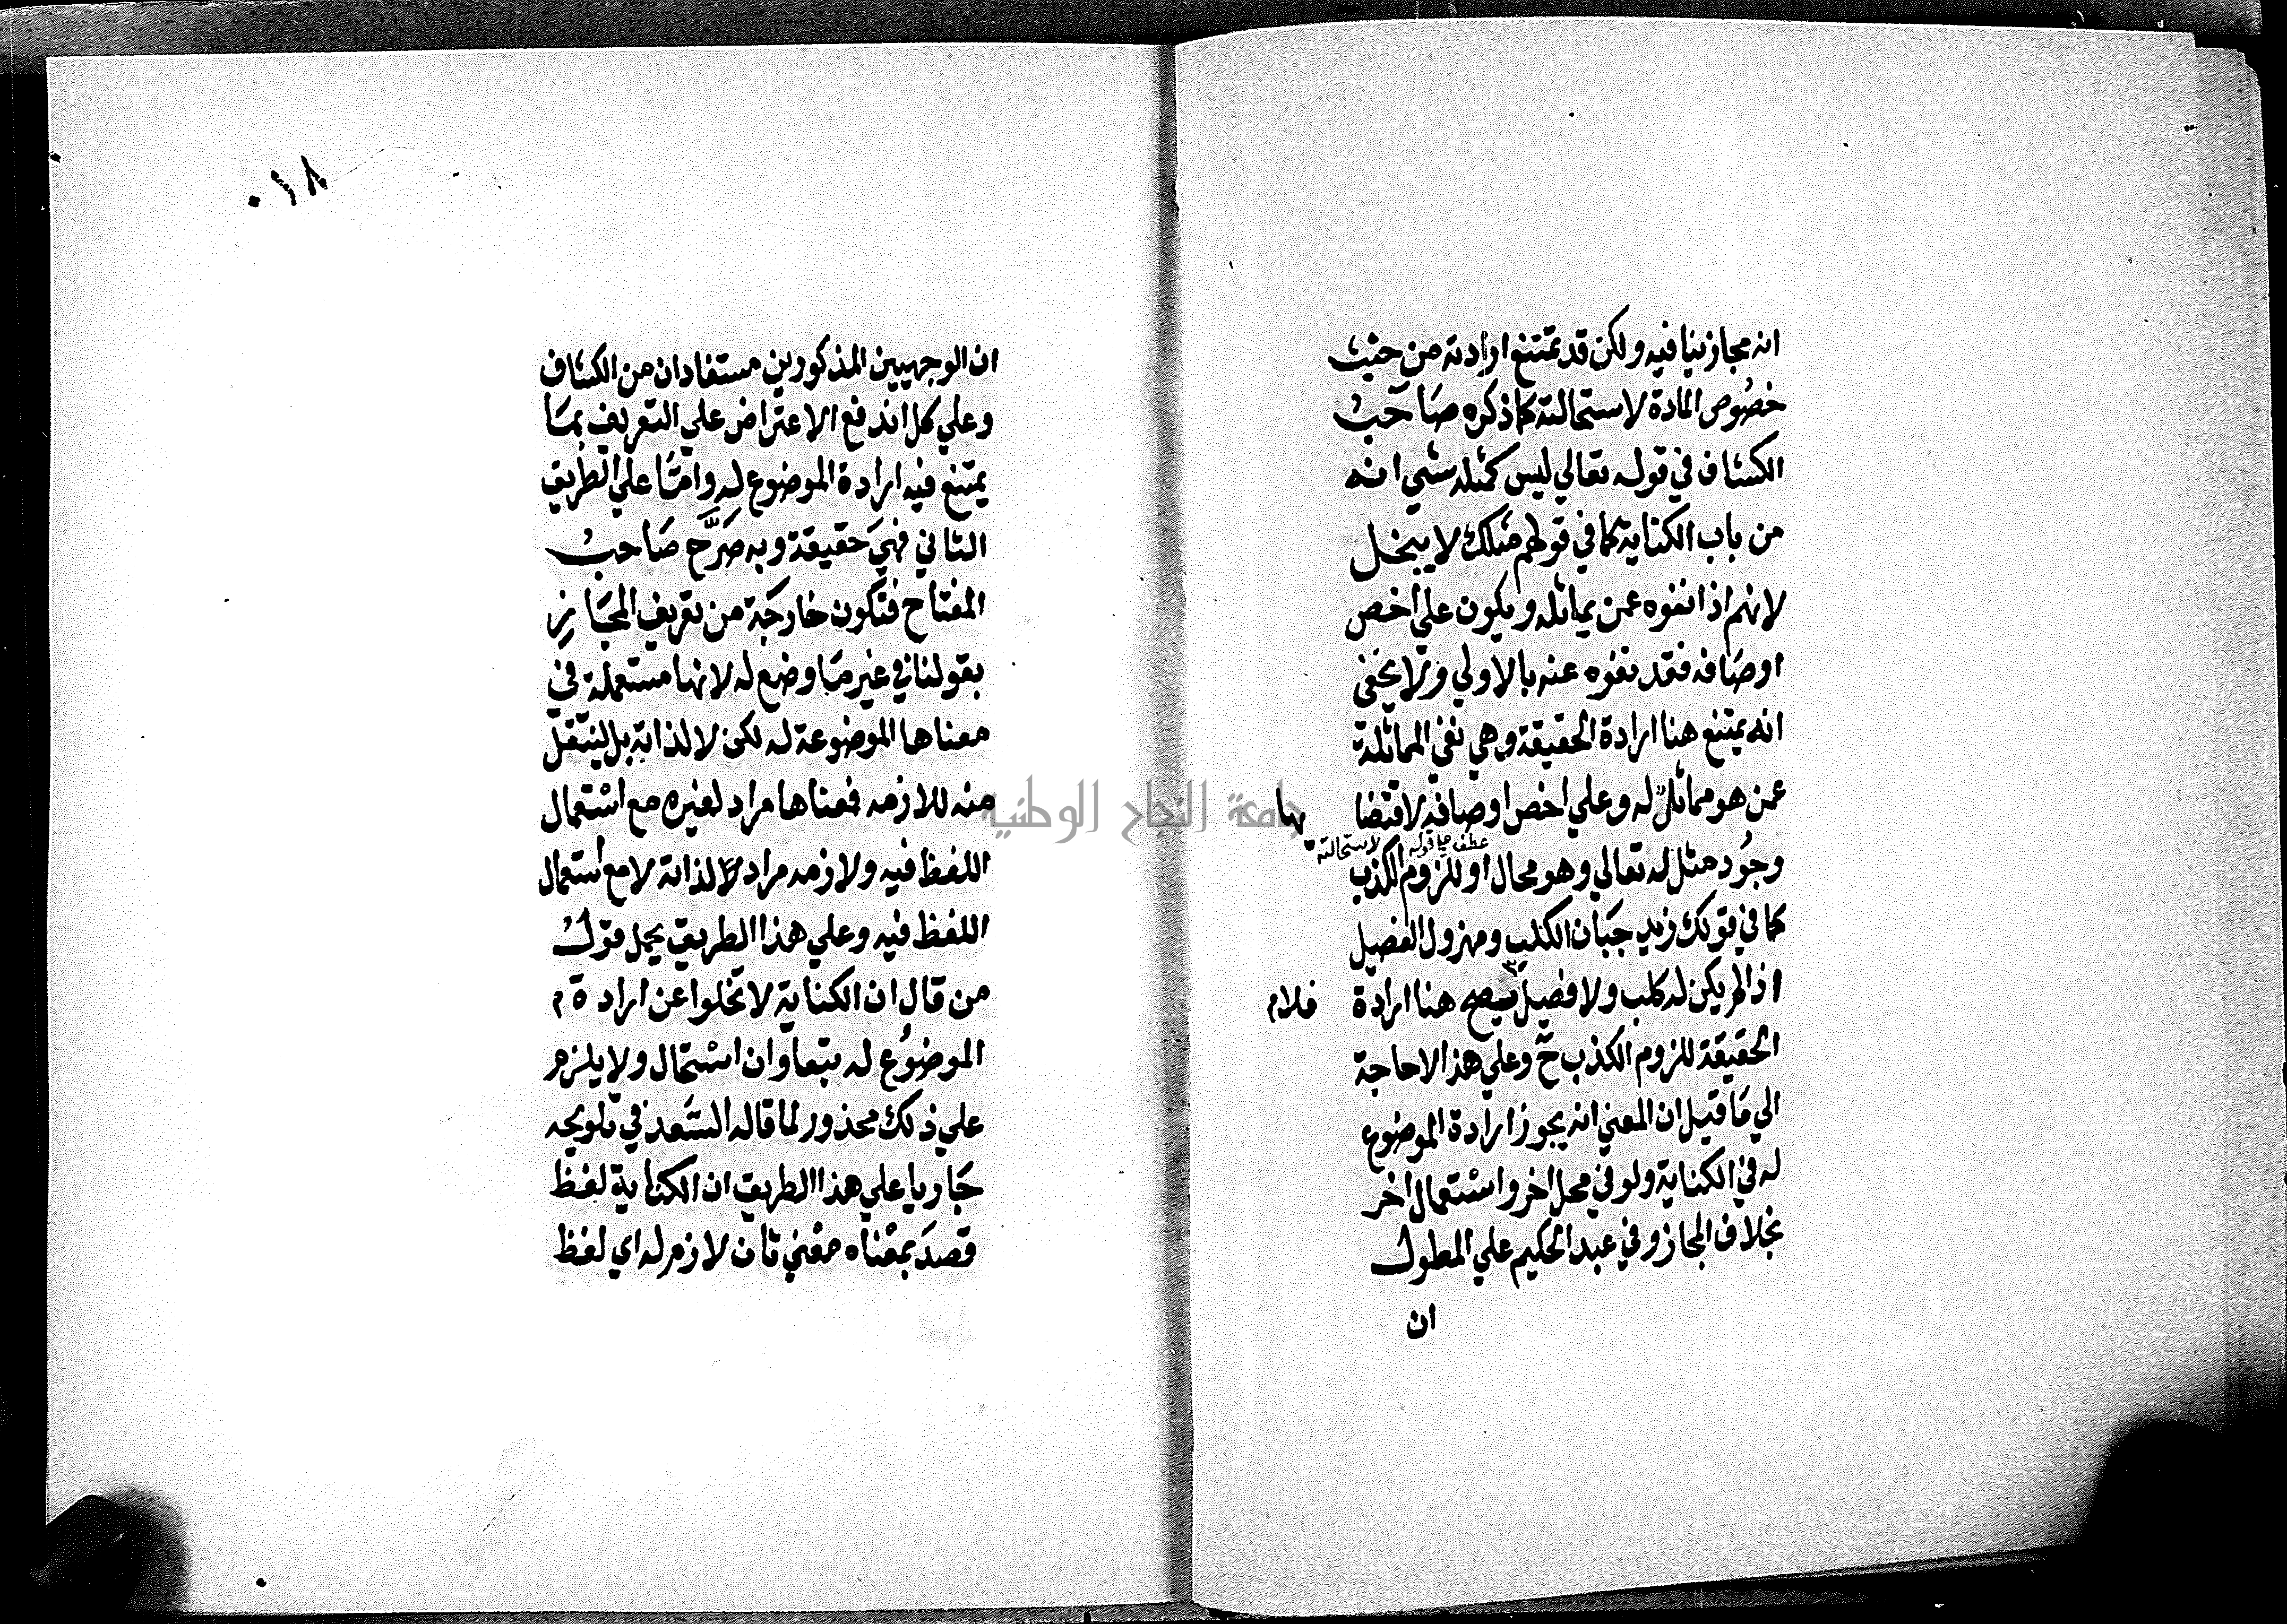 انه مجاز ينافيه ولكن قد تمتنع ارادته من حيث
خصُوص المادة لاستحالته كما ذكره صَاحبُ
الكشاف في قوله تعالي ليس كمثله شي انه
من باب الكناية كما في قولهم مثلك لا يبخل
لانهم اذا نفوه عمن يماثله ويكون علي اخص
اوصَافه فقد نفوه عنه بالاولي ولا يخفى
انه يمتنع هنا ارادة الحقيقة وهي نفي المماثلة
عمن هو مماثل له وعلي اخص اوصافه لاقتضا بها
عطف علي قوله لاستحالته
وجُود مثل له تعالي وهو محال او للزوم الكذب
كما في قولك زيد جبَان الكلب ومهزول الفصيل
اذا لم يكن له كلب ولا فصيل يصح هنا ارادة
فلام
الحقيقة للزوم الكذب ح وعلي هذا لا حاجة
الي مَا قيل ان المعني انه يجوز ارادة الموضوع
له في الكناية ولو في محل اخر واستعمال اخر
بخلاف المجاز وفي عبد الحكيم علي المطول
ان
٠١٨
ان الوجهيين المذكورين مستفادان من الكشاف
وعلي كل اندفع الاعتراض علي التعريف بمَا
يمتنع فيه ارادة الموضوع له وامَّا علي الطريق
الثاني فهيَ حقيقة وبه صَرَّح صَاحبُ
المفتاح فتكون خارجَة من تعريف المجَازِ
بقولنا في غير مَا وضع له لانها مستعملة في
معناها الموضوعة له لكن لا لذاته بل لينتقل
منه للازمه فمعناها مراد لغيره مع اسْتعمال
اللفظ فيه ولازمه مراد لا لذاته لا مع استعمال
اللفظ فيه وعلي هذا الطريق يحمل قولُ
من قال ان الكناية لا تخلوا عن ارادة م
الموضوُع له بتعا وان اسْتحال ولا يلزم
علي ذلك محذور لما قاله السَّعد في تلويحه
جَاريا علي هذا الطريق ان الكناية لفظ
قصدَ بمعْناه معْني ثان لازم له اي لفظ
جامعة النجاح الوطنية